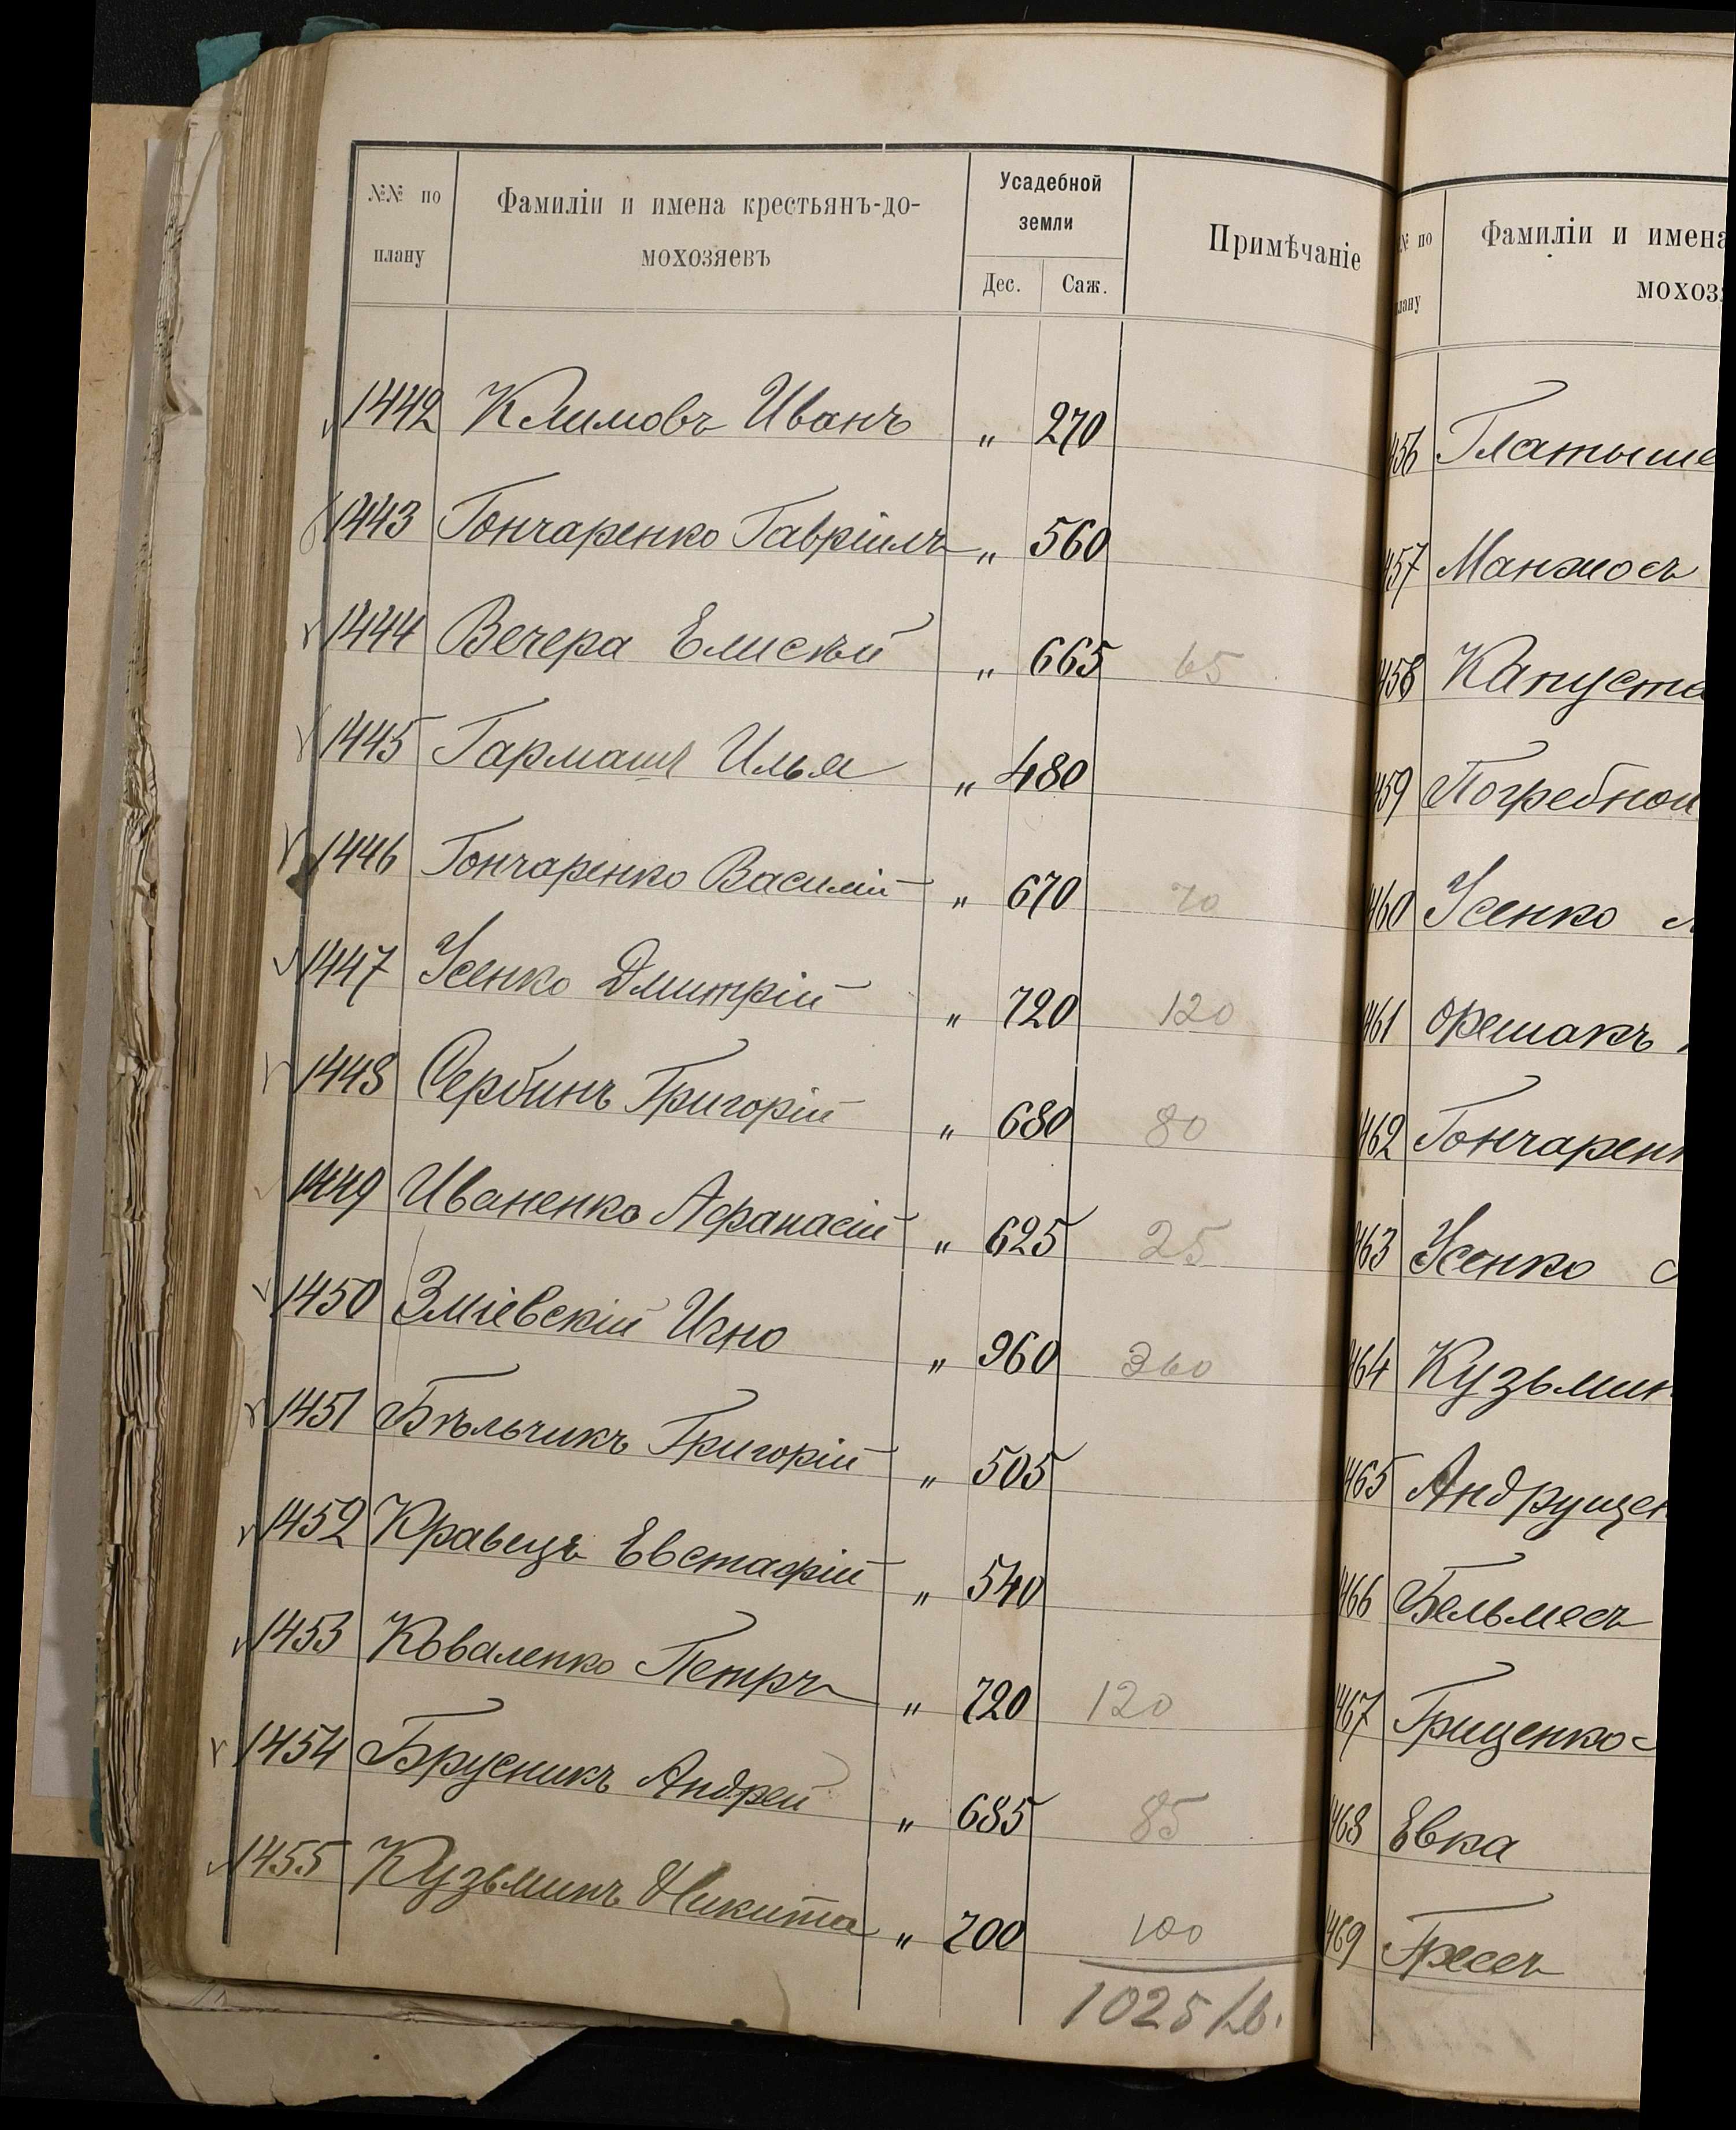 №№ по плану
Фамиліи и имена крестьянъ-до-
мохозяевъ
Усадебной
земли
Дес. Саж.
Примѣчаніе
1442 Климовъ Иванъ „ 270
1443 Гончаренко Гавріилъ „ 560
1444 Вечера Елисѣй „ 665 65
1445 Гармашъ Илья „ 480
1446 Гончаренко Василій „ 670 70
1447 Усенко Дмитрій „ 720 120
1448 Сербинъ Григорій „ 680 80
1449 Иваненко Афанасій „ 625 25
1450 Зміевскій Игно „ 960 360
1451 Бѣльчикъ Григорій „ 505
1452 Кравецъ Евстафій „ 540
1453 Коваленко Петръ „ 720 120
1454 Брусникъ Андрей „ 685 85
1455 Кузьминъ Никита „ 700 100
1025
№ по
лану
Фамиліи и имена
мохоз
456 Глатыше
457 Манжосъ
458 Капуста
459 Погребной
460 Усенко
461 Орешакъ
462 Гончарен
463 Усенко
464 Кузьмин
465 Андрущен
466 Бельмесъ
467 Грищенко
468 Евка
469 Гресь